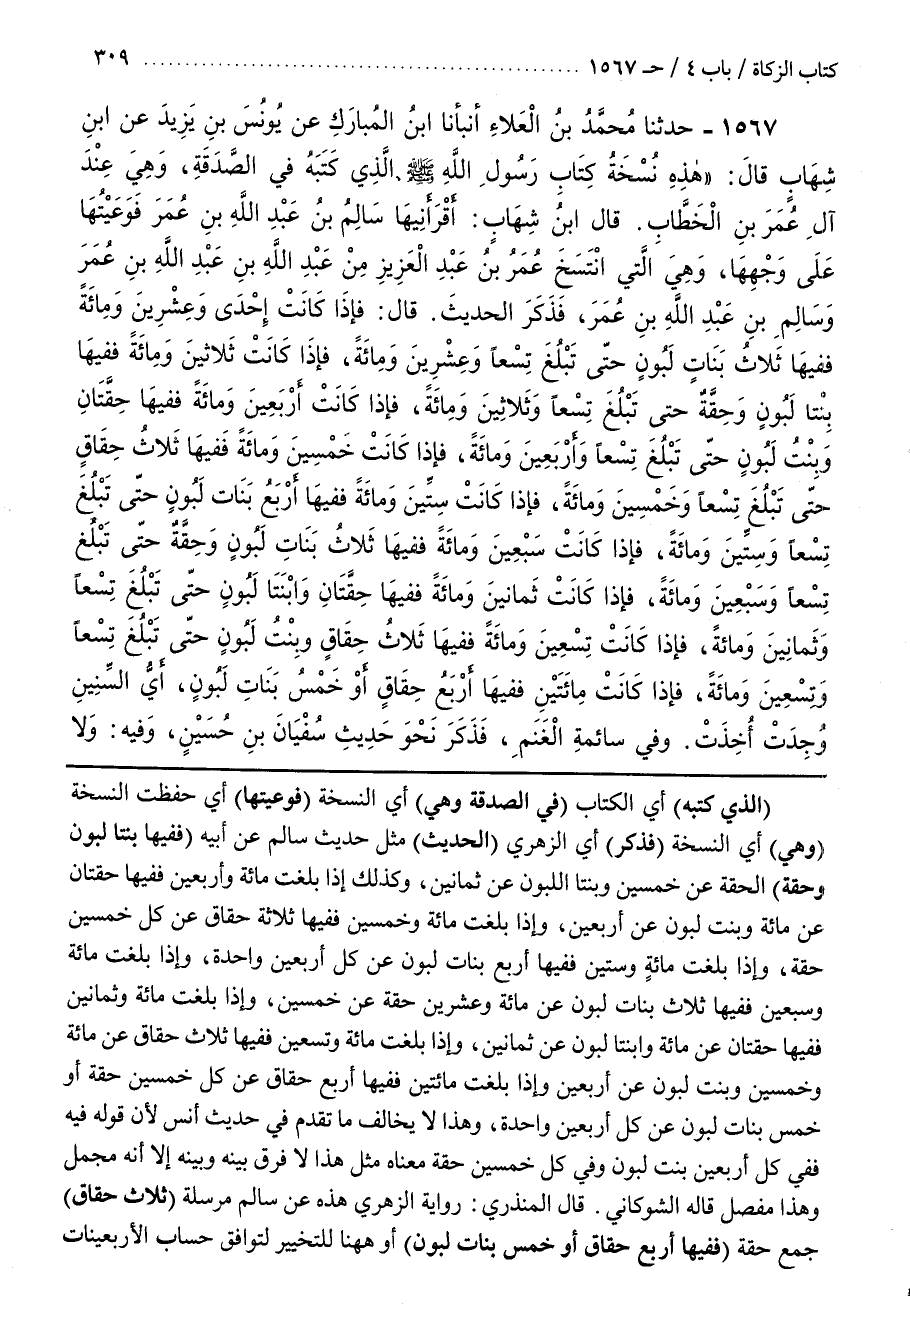 كتاب الزكاة / باب ٤ / حـ ١٥٦٧ ................................................ ٣٠٩
١٥٦٧ - حدثنا مُحمَّدُ بنُ الْعَلَاءِ أنبأنا ابنُ المُبَارَكِ عن يُونُسَ بنِ يَزِيدَ عن ابنِ
شِهَابٍ قالَ: «هٰذِهِ نُسْخَةُ كِتَابِ رَسُولِ اللَّهِ ﷺ الَّذِي كَتَبَهُ في الصَّدَقَةِ، وَهِيَ عِنْدَ
آلِ عُمَرَ بنِ الْخَطَّابِ. قال ابنُ شِهَابٍ: أَقْرَأَنِيهَا سَالِمُ بنُ عَبْدِ اللَّهِ بنِ عُمَرَ فَوَعَيْتُهَا
عَلَى وَجْهِهَا، وَهِيَ الَّتي انْتَسَخَ عُمَرُ بنُ عَبْدِ الْعَزِيزِ مِنْ عَبْدِ اللَّهِ بنِ عَبْدِ اللَّهِ بنِ عُمَرَ
وَسَالِمِ بنِ عَبْدِ اللَّهِ بنِ عُمَرَ، فَذَكَرَ الحديثَ. قال: فإذَا كَانَتْ إحْدَى وَعِشْرِينَ وَمِائَةً
ففيهَا ثَلَاثُ بَنَاتِ لَبُونٍ حتّى تَبْلُغَ تِسْعاً وَعِشْرِينَ وَمِائَةً، فإذَا كَانَتْ ثَلَاثينَ وَمِائَةً ففيهَا
بِنْتا لَبُونٍ وَحِقَّةٌ حتى تَبْلُغَ تِسْعاً وَثَلَاثِينَ وَمِائَةً، فإذا كَانَتْ أرْبَعِينَ وَمائَةً ففيهَا حِقَّتَانِ
وَبِنْتُ لَبُونٍ حتّى تَبْلُغَ تِسْعاً وَأرْبَعِينَ وَمائَةً، فإذا كَانَتْ خَمْسِينَ وَمائَةً فَفيهَا ثَلَاثُ حِقَاقٍ
حتّى تَبْلُغَ تِسْعاً وَخَمْسِينَ وَمائَةً، فإذا كَانَتْ سِتِّينَ وَمائَةً ففيهَا أرْبَعُ بَنَات لَبُونٍ حتّى تَبْلُغَ
تِسْعاً وَسِتِّينَ وَمائَةً، فإذا كَانَتْ سَبْعِينَ وَمائَةً ففيهَا ثَلاثُ بَنَاتِ لَبُونٍ وَحِقَّةٌ حتّى تَبْلُغَ
تِسْعاً وَسَبْعِينَ وَمائَةً، فإذا كَانَتْ ثَمانينَ وَمائَةً ففيهَا حِقَّتَانِ وَابْنَتَا لَبُونٍ حتّى تَبْلُغَ تِسْعاً
وَثَمانِينَ وَمائةً، فإذا كَانَتْ تِسْعِينَ وَمائَةً ففيهَا ثَلَاثُ حِقَاقٍ وبِنْتُ لَبُونٍ حتّى تَبْلُغَ تِسْعاً
وَتِسْعِينَ وَمائَةً، فإذا كَانَتْ مِائَتَيْنِ ففيهَا أرْبَعُ حِقَاقٍ أوْ خَمْسُ بَنَاتِ لَبُونٍ، أيُّ السِّنِينِ
وُجِدَتْ أُخِذَتْ. وفي سائمةِ الْغَنَمِ، فَذَكَرَ نَحْوَ حَدِيثِ سُفْيَانَ بنِ حُسَيْنٍ، وَفيه: وَلا
(الذي كتبه) أي الكتاب (في الصدقة وهي) أي النسخة (فوعيتها) أي حفظت النسخة
(وهي) أي النسخة (فذكر) أي الزهري (الحديث) مثل حديث سالم عن أبيه (ففيها بنتا لبون
وحقة) الحقة عن خمسين وبنتا اللبون عن ثمانين، وكذلك إذا بلغت مائة وأربعين ففيها حقتان
عن مائة وبنت لبون عن أربعين، وإذا بلغت مائة وخمسين ففيها ثلاثة حقاق عن كل خمسين
حقة، وإذا بلغت مائةٍ وستين ففيها أربع بنات لبون عن كل أربعين واحدة، وإذا بلغت مائة
وسبعين ففيها ثلاث بنات لبون عن مائة وعشرين حقة عن خمسين، وإذا بلغت مائة وثمانين
ففيها حقتان عن مائة وابنتا لبون عن ثمانين، وإذا بلغت مائة وتسعين ففيها ثلاث حقاق عن مائة
وخمسين وبنت لبون عن أربعين وإذا بلغت مائتين ففيها أربع حقاق عن كل خمسين حقة أو
خمس بنات لبون عن كل أربعين واحدة، وهذا لا يخالف ما تقدم في حديث أنس لأن قوله فيه
ففي كل أربعين بنت لبون وفي كل خمسين حقة معناه مثل هذا لا فرق بينه وبينه إلا أنه مجمل
وهذا مفصل قاله الشوكاني. قال المنذري: رواية الزهري هذه عن سالم مرسلة (ثلاث حقاق)
جمع حقة (ففيها أربع حقاق أو خمس بنات لبون) أو ههنا للتخيير لتوافق حساب الأربعينات